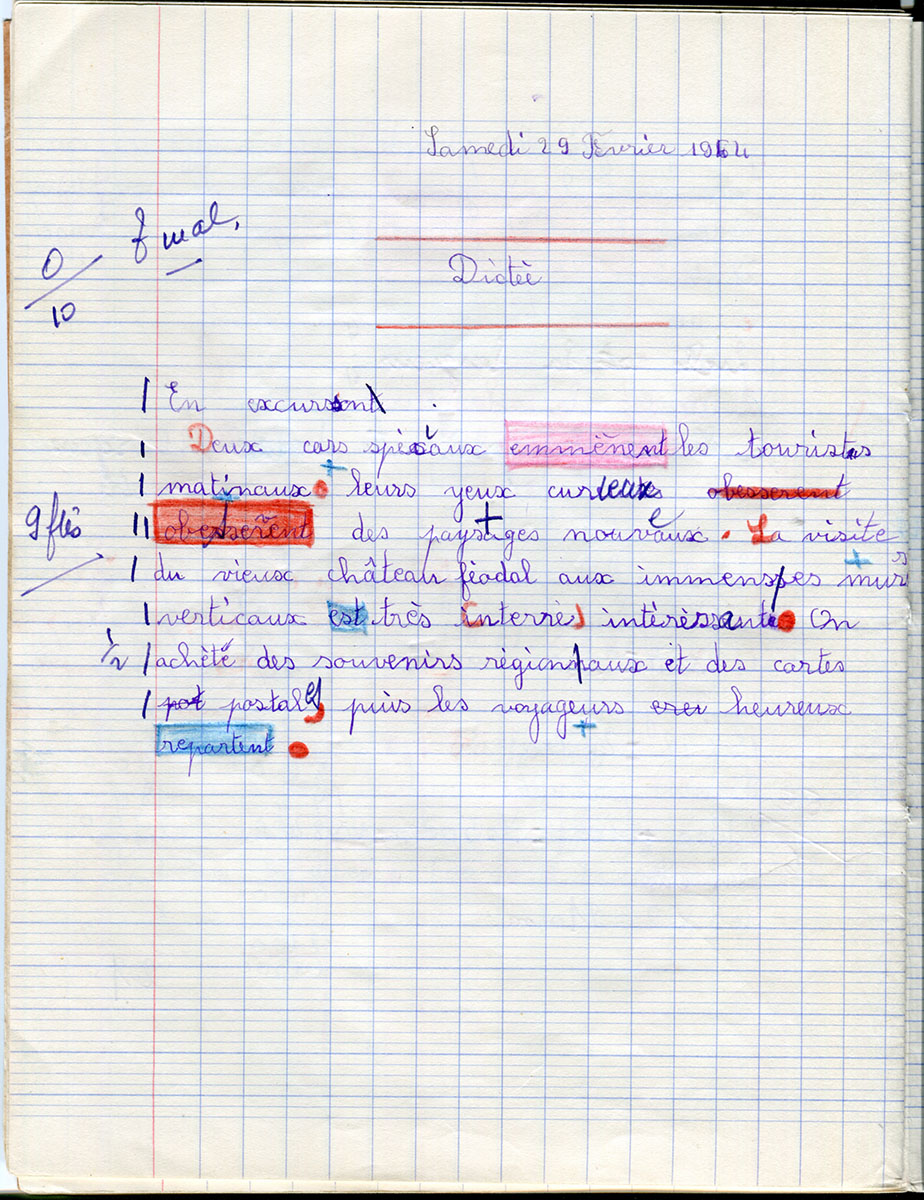 Samedi 29 Février 1964
t mal,
0/10
Dictée
En excursion
Deux cars spéciaux emmènent les touristes
matinaux. leurs yeux curieux obesserent
9 ftes
obesserent des paysages nouveaux. La visite
du vieux château féodal aux immenses murs
verticaux est très (interrè) intérèssante. On
1/2
achète des souvenirs régionaux et des cartes
pot postales, puis les voyageurs heureux
repartent.